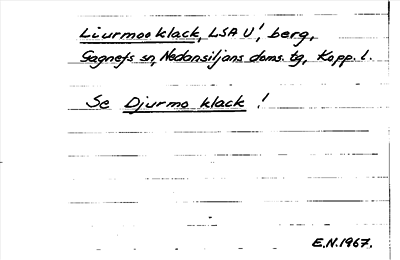 Liurmoo klack, LSA U!, berg,
Gagnefs sn, Nedansiljans doms. tg, Kopp. l.
Se Djurmo klack !
E.N.1967.